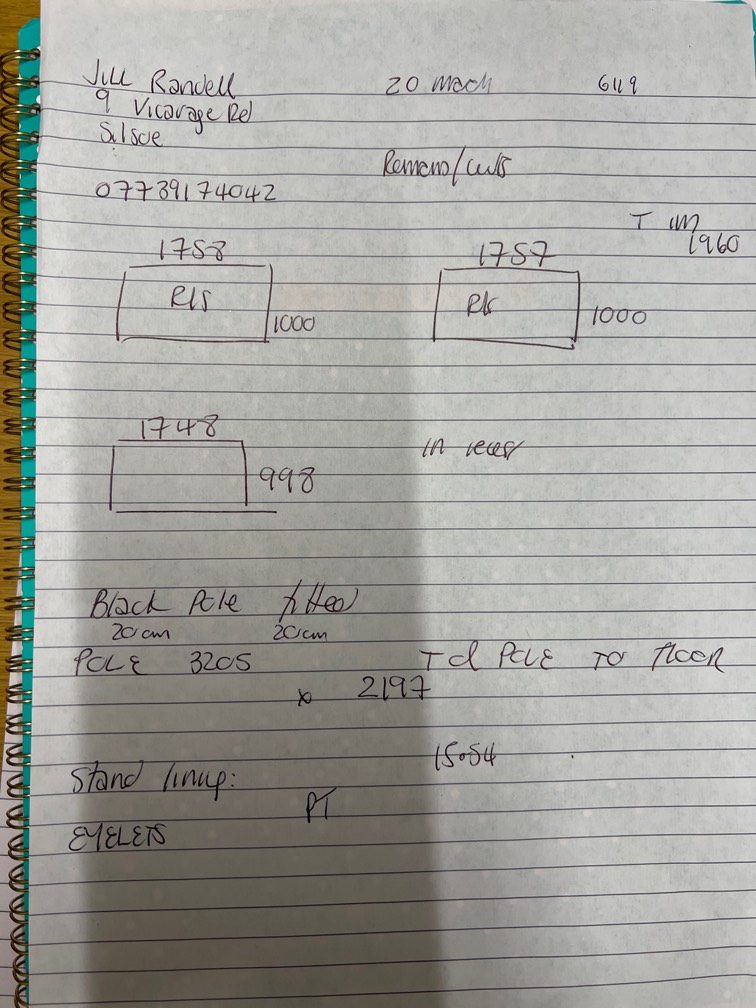 Jill Randell 20 March 6119
9 Vicarage Rd
Silsoe
07739174042
T
1960
1758
R/S
1000
1757
1000
1748
998
in recess
Black Pole fitted
20cm 20cm
POLE 3205
T of POLE TO FLOOR
x 2197
15.54
Stand linup:
PT
EYELETS